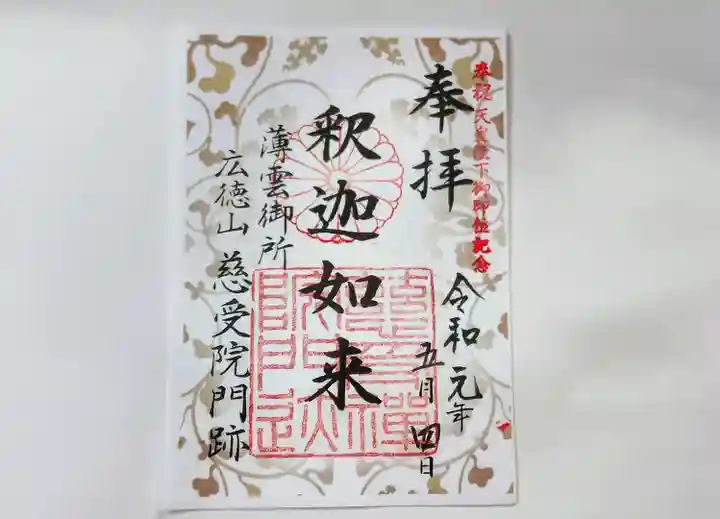 奉祝天皇陛下御即位記念
奉拝
令和元年
五月四日
釈迦如来
薄雲御所
広徳山 慈受院門跡